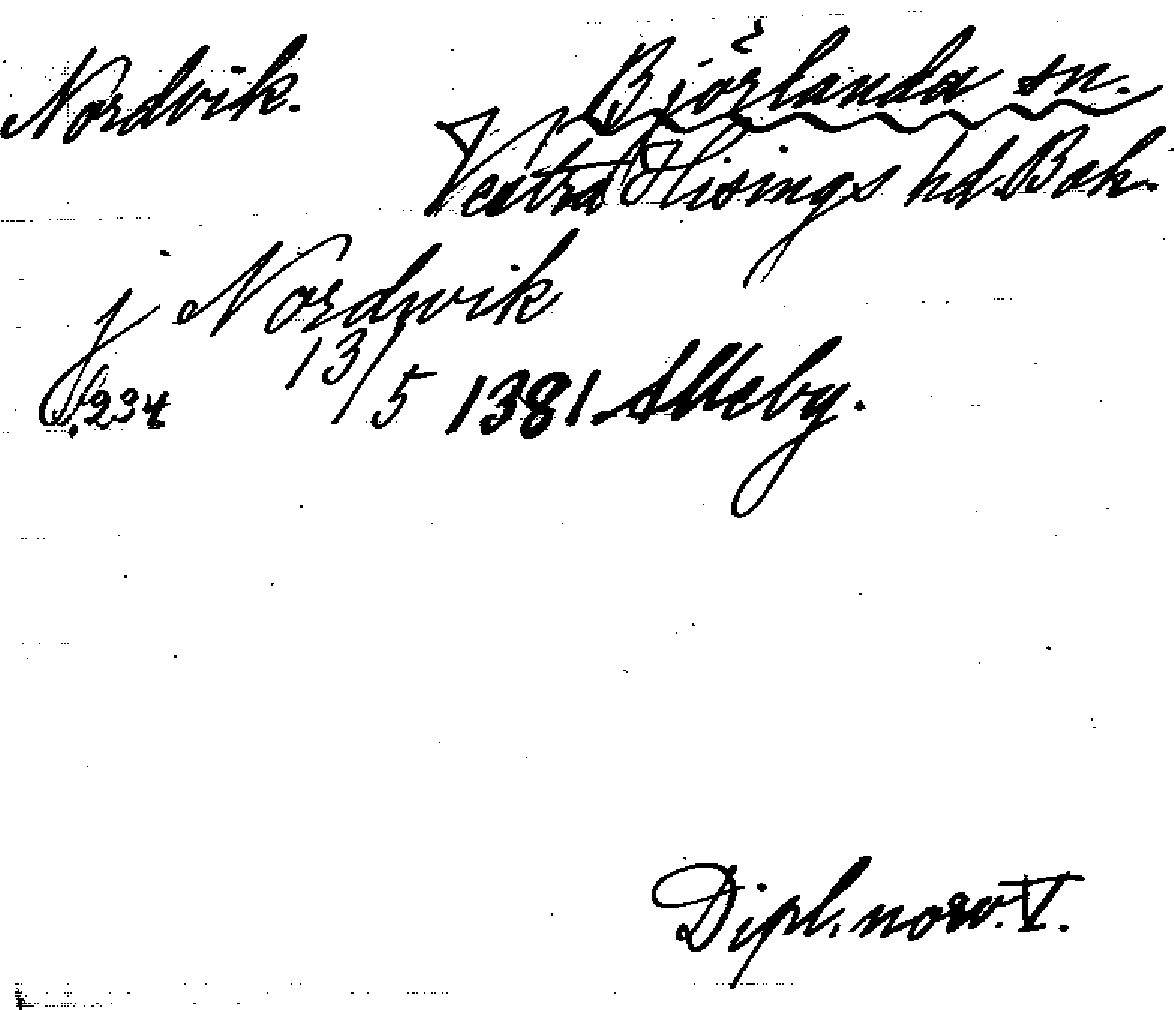 Nordvik. Björlanda sn.
Vestra Hisings hd. Boh.
j Nordwik
S. 234 13/5 1381. Alleby.
Dipl. norv. V.